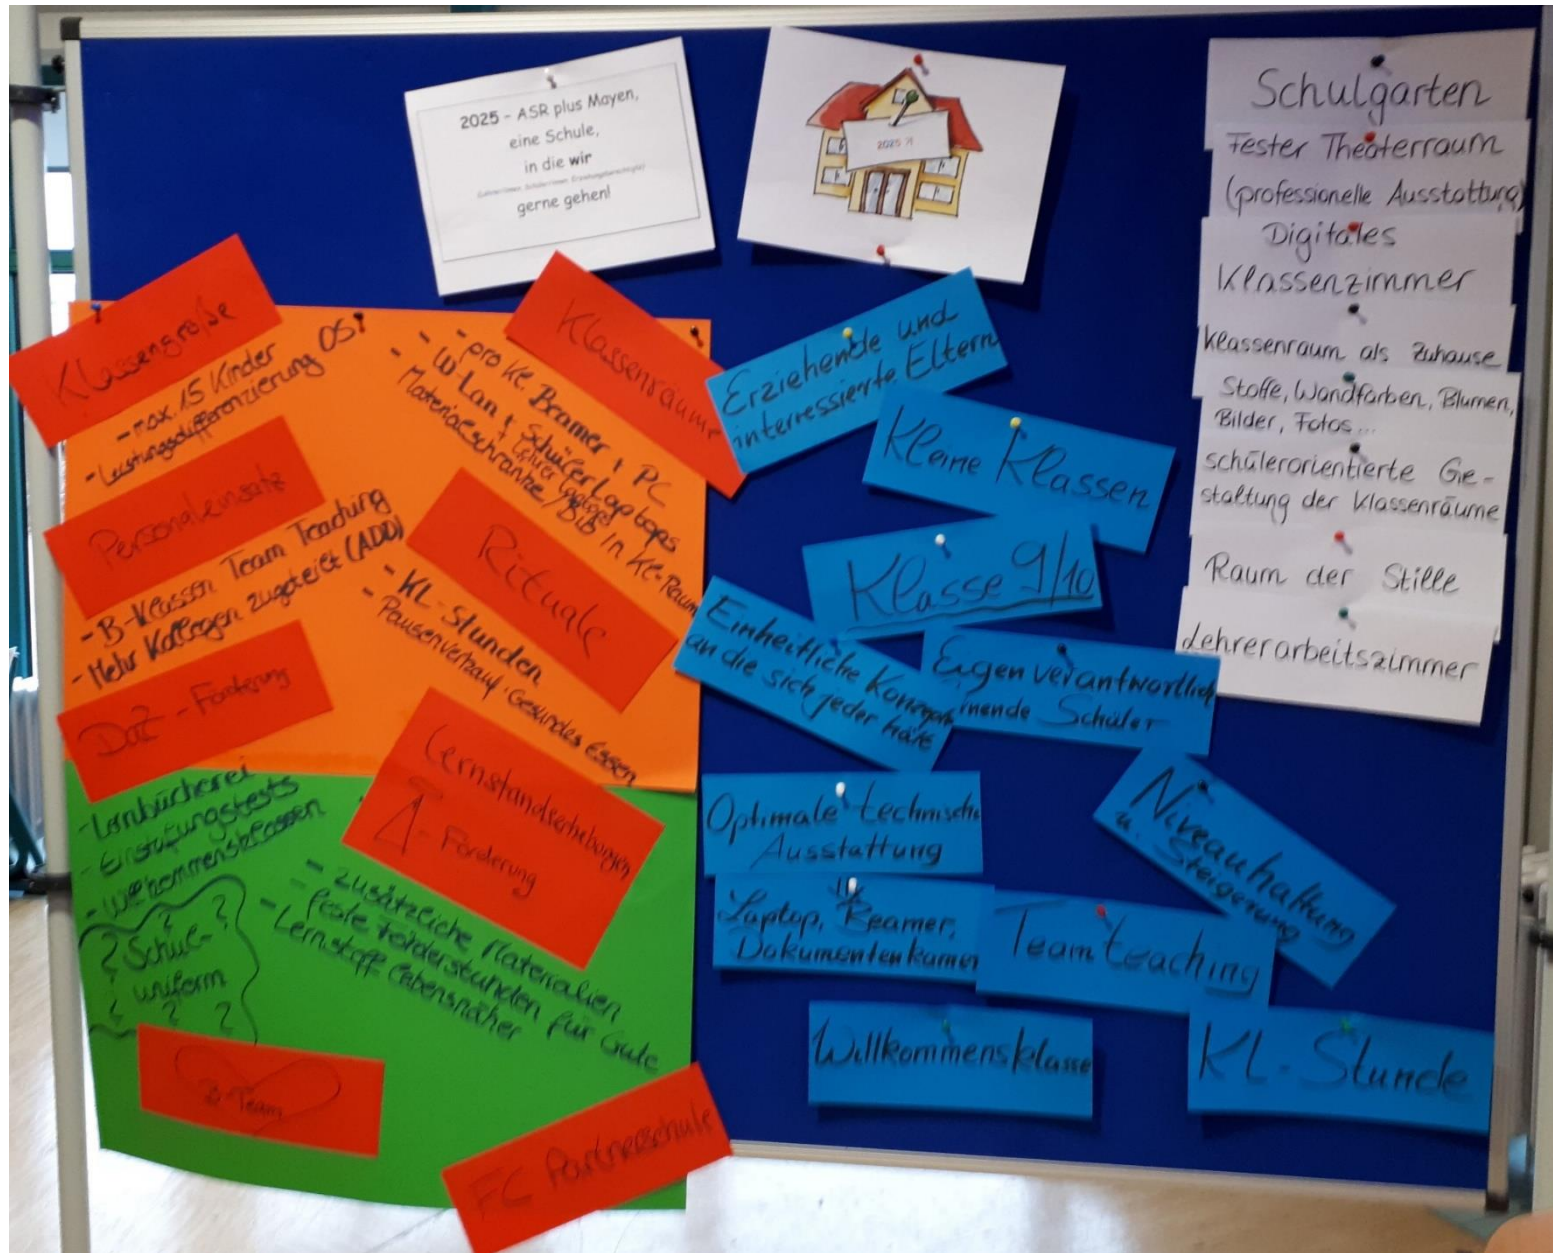 2025 - ASR plus Mayen,
eine Schule,
in die wir
gerne gehen!
2025 ?!
Klassengröße
- max. 15 Kinder
- Leistungsdifferenzierung OS!
Personaleinsatz
- B-Klassen Team Teaching
- Mehr Kollegen zugeteilt (ADD)
DaZ - Förderung
- Lernbücherei
- Einstufungstests
- Willkommensklassen
? ? ?
? Schul-
uniform
? ? ?
B-Team
Klassenräume
- pro Kl. Beamer + PC
- W-Lan + Schülerlaptops
+ Lehrerlaptops
- Materialschränke/BiB in Kl.-Raum
Rituale
- KL-Stunden
- Pausenverkauf: Gesundes Essen
Lernstandserhebungen
- Förderung
- zusätzliche Materialien
- feste Förderstunden für Gute
- Lernstoff lebensnäher
FC Partnerschule
Erziehende und
interressierte Eltern
Kleine Klassen
Klasse 9/10
Einheitliche Konzepte
an die sich jeder hält
Eigenverantwortlich
nende Schüler
Optimale technische
Ausstattung
Laptop, Beamer,
Dokumentenkamer
Niveauhaltung
u. Steigerung
Teamteaching
Willkommensklasse
KL.-Stunde
Schulgarten
Fester Theaterraum
(professionelle Ausstattung)
Digitales
Klassenzimmer
Klassenraum als Zuhause
Stoffe, Wandfarben, Blumen,
Bilder, Fotos...
schülerorientierte Ge-
staltung der Klassenräume
Raum der Stille
Lehrerarbeitszimmer